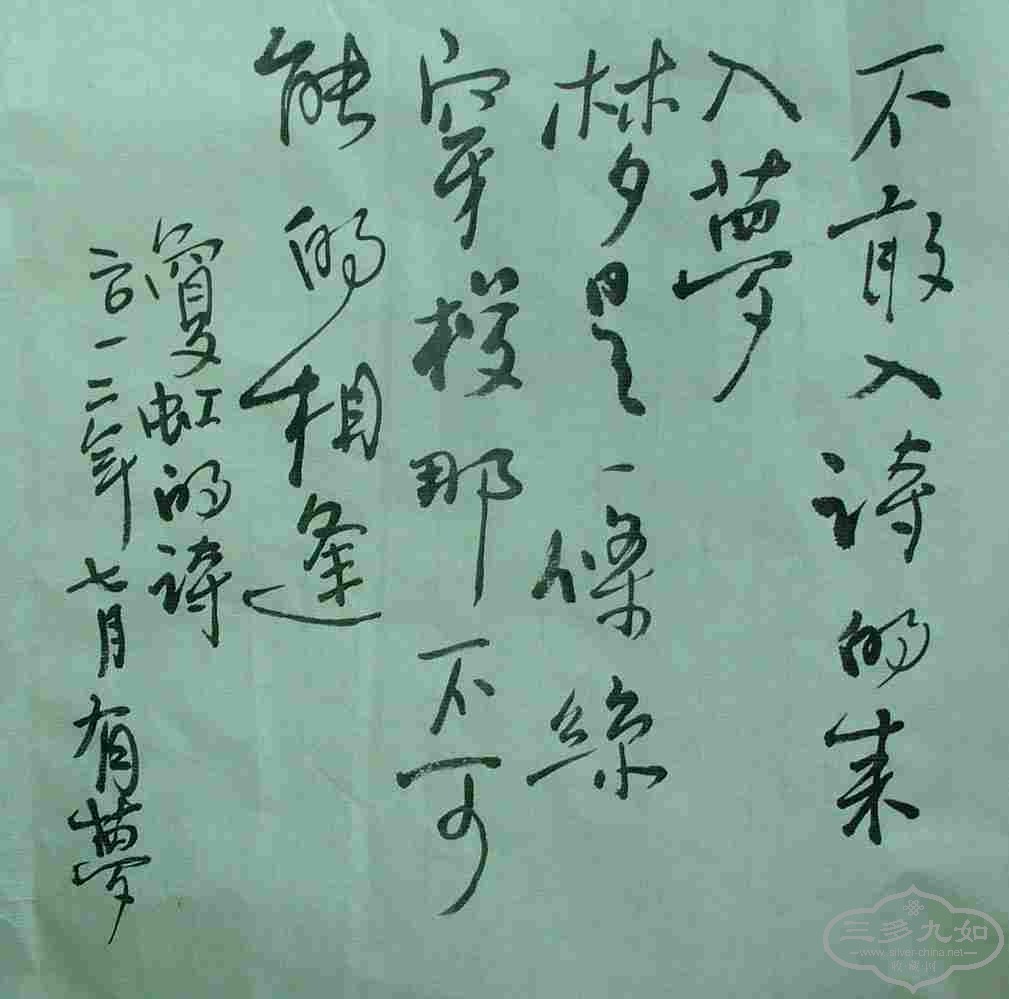 不敢入诗的来
入夢
梦是一條絲
穿梭那不可
能的相逢
敻虹的诗
二〇一二年七月有夢
三多九如
www.silver-china.net
收藏网